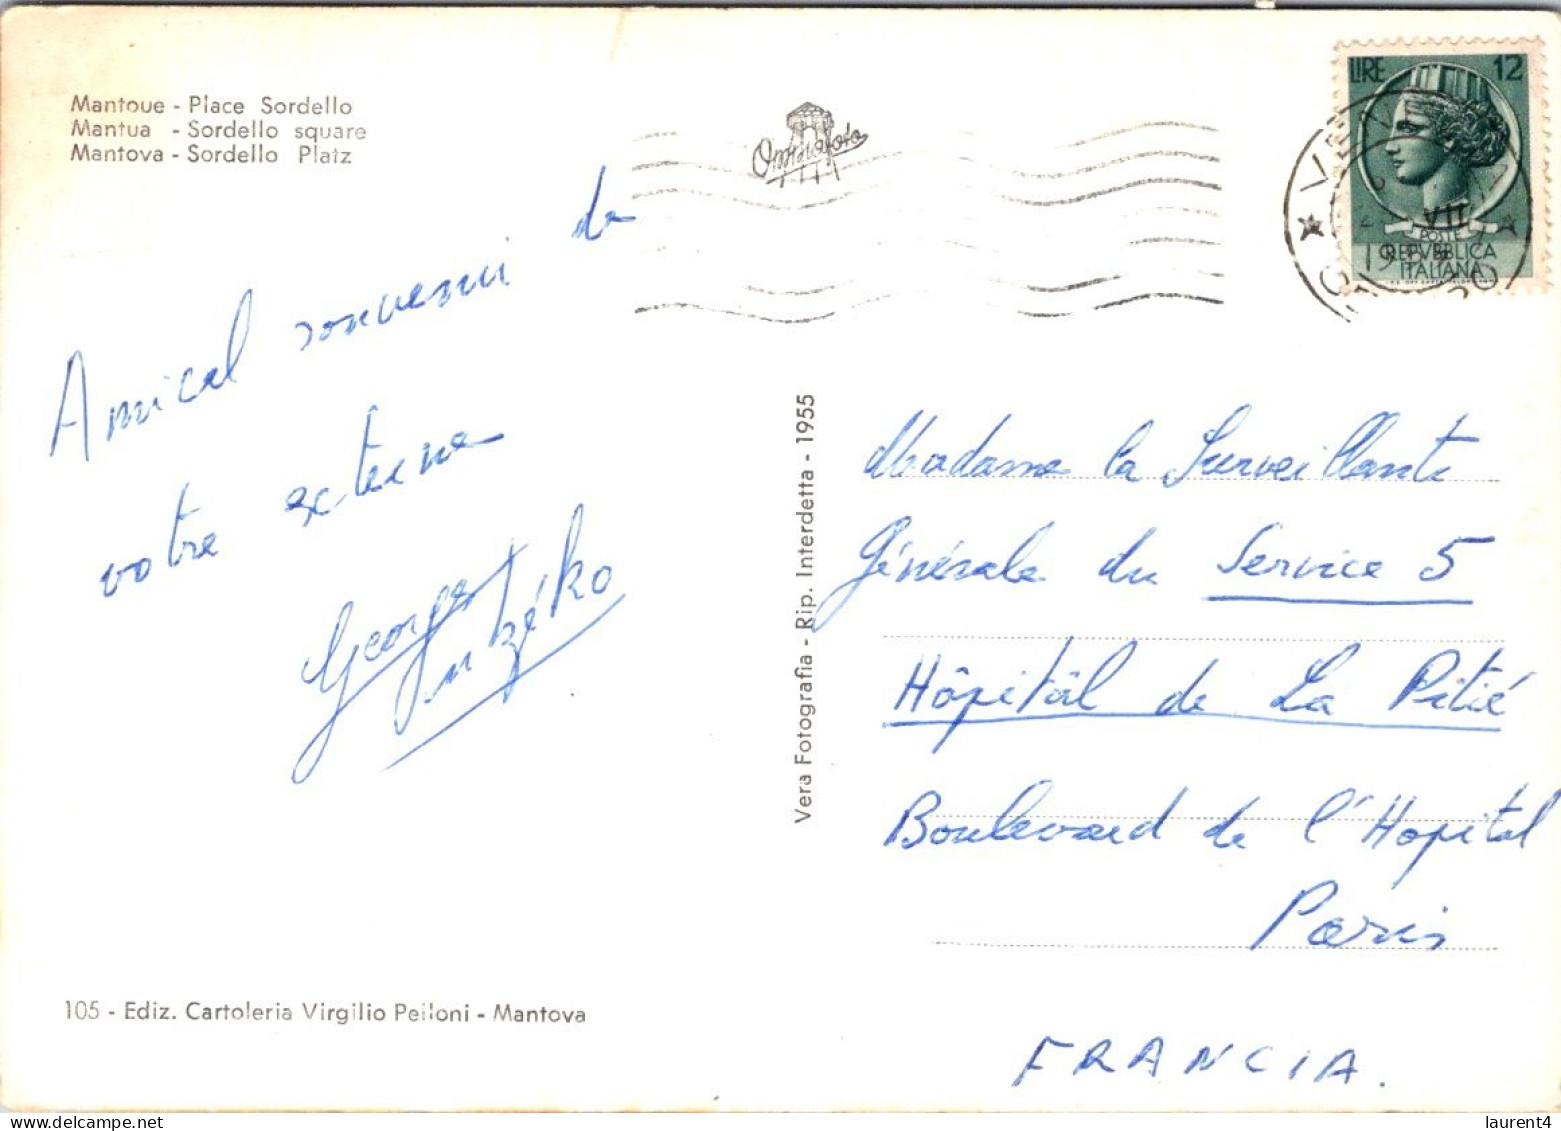 Mantoue - Place Sordello
Mantua - Sordello square
Mantova - Sordello Platz
Omniafoto
LIRE 12
POSTE
REPVBBLICA
ITALIANA
VII
Amical souvenir de
votre externe
Georges
Vera Fotografia - Rip. Interdetta - 1955
Madame la Surveillante
Générale du Service 5
Hôpitâl de La Pitié
Boulevard de l'Hopital
Paris
FRANCIA.
105 - Ediz. Cartoleria Virgilio Pelloni - Mantova
laurent4